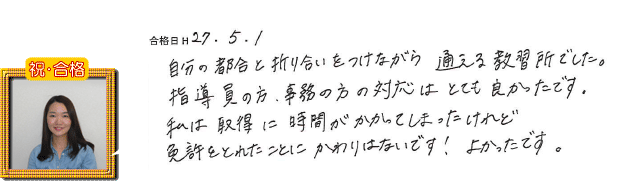 合格日H27.5.1
祝・合格
自分の都合と折り合いをつけながら 通える教習所でした。
指導員の方、事務の方の対応は とても良かったです。
私は取得に時間がかかってしまったけれど
免許をとれたことにかわりはないです! よかったです。